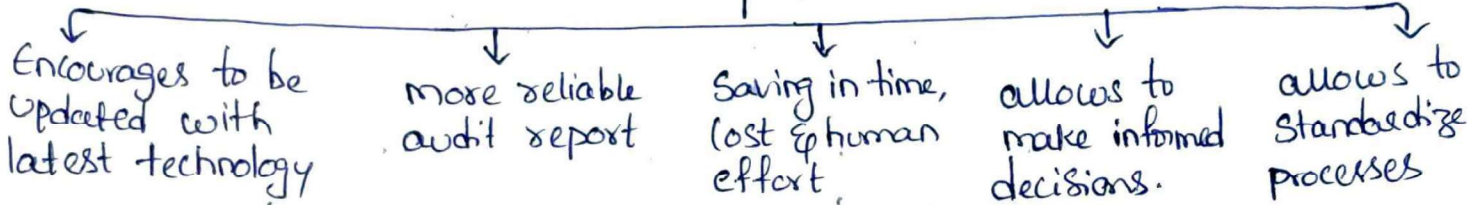 Encourages to be
updated with
latest technology
more reliable
audit report
Saving in time,
Cost & human
effort
allows to
make informed
decisions.
allows to
Standardize
processes